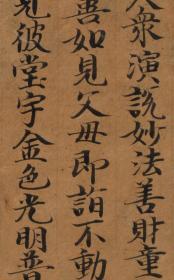 衆演說妙法善財童
善如見父母即詣不動
見彼堂宇金色光明普